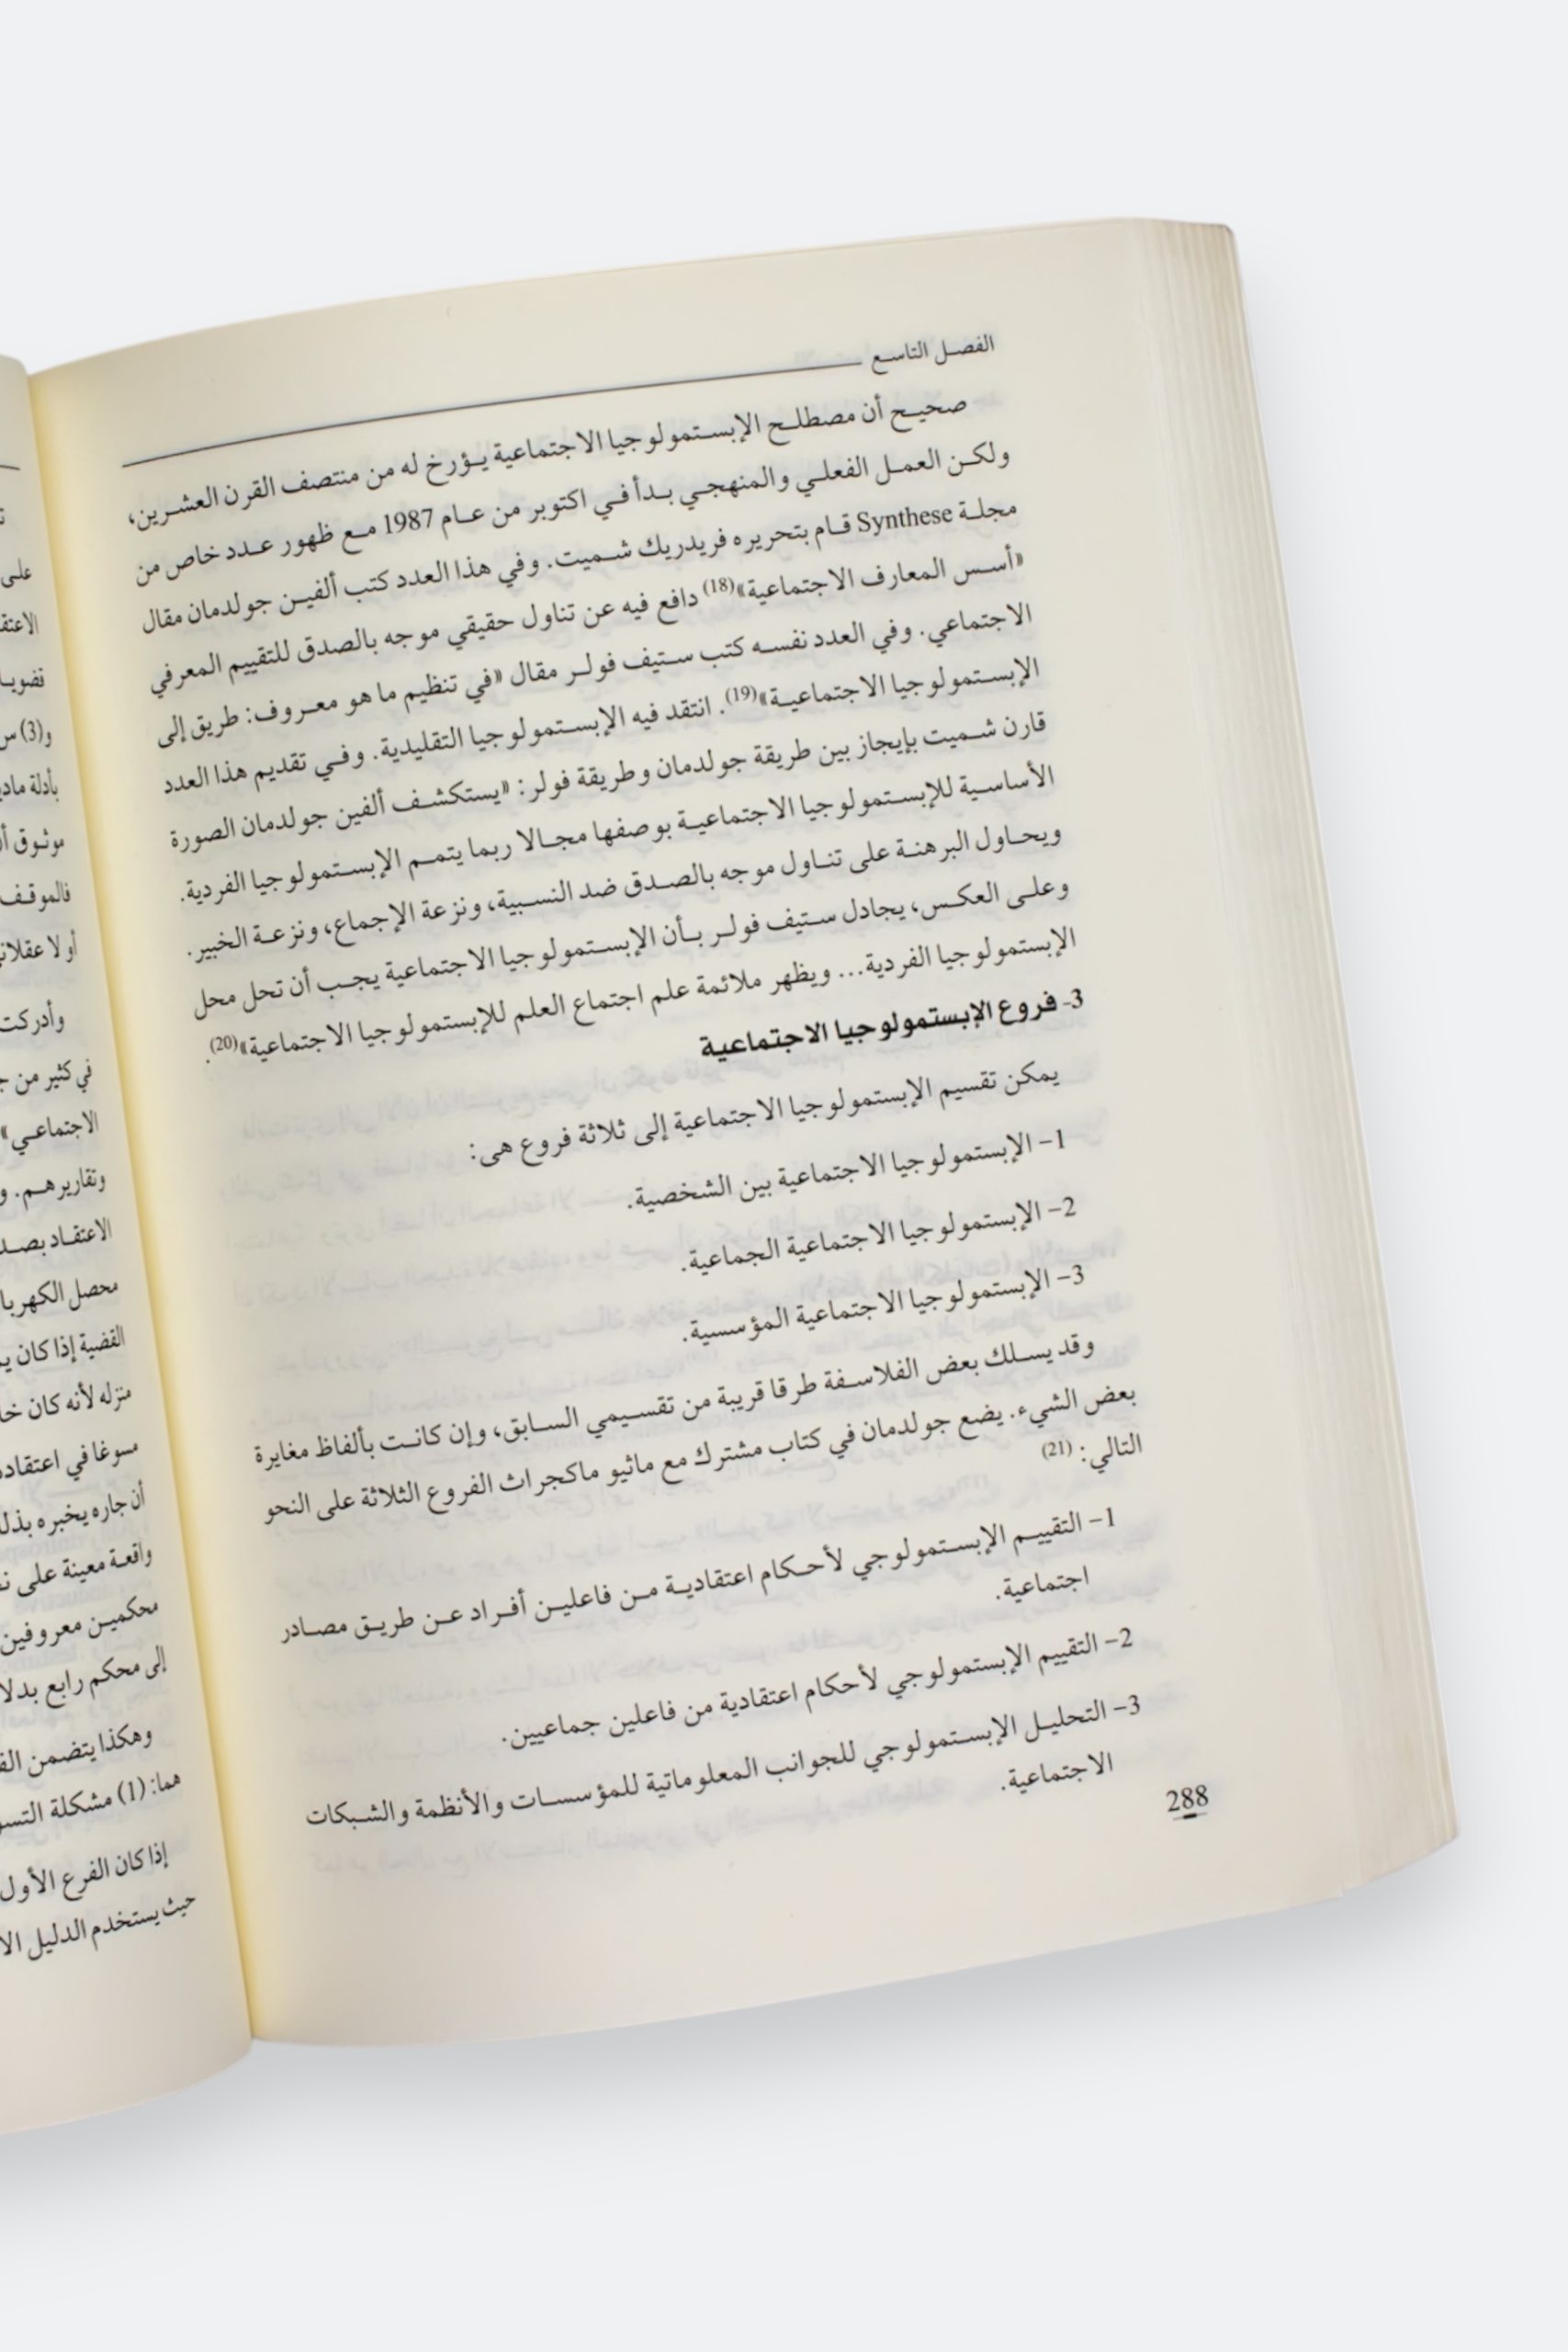 الفصل التاسع
صحيح أن مصطلح الإبستمولوجيا الاجتماعية يؤرخ له من منتصف القرن العشرين،
ولكن العمل الفعلي والمنهجي بدأ في اكتوبر من عام 1987 مع ظهور عدد خاص من
مجلة Synthese قام بتحريره فريدريك شميت. وفي هذا العدد كتب ألفين جولدمان مقال
«أسس المعارف الاجتماعية»(18) دافع فيه عن تناول حقيقي موجه بالصدق للتقييم المعرفي
الاجتماعي. وفي العدد نفسه كتب ستيف فولر مقال «في تنظيم ما هو معروف: طريق إلى
الإبستمولوجيا الاجتماعية»(19). انتقد فيه الإبستمولوجيا التقليدية. وفي تقديم هذا العدد
قارن شميت بإيجاز بين طريقة جولدمان وطريقة فولر: «يستكشف ألفين جولدمان الصورة
الأساسية للإبستمولوجيا الاجتماعية بوصفها مجالا ربما يتمم الإبستمولوجيا الفردية.
ويحاول البرهنة على تناول موجه بالصدق ضد النسبية، ونزعة الإجماع، ونزعة الخبير.
وعلى العكس، يجادل ستيف فولر بأن الإبستمولوجيا الاجتماعية يجب أن تحل محل
الإبستمولوجيا الفردية... ويظهر ملائمة علم اجتماع العلم للإبستمولوجيا الاجتماعية»(20).
3- فروع الإبستمولوجيا الاجتماعية
يمكن تقسيم الإبستمولوجيا الاجتماعية إلى ثلاثة فروع هى:
1- الإبستمولوجيا الاجتماعية بين الشخصية.
2- الإبستمولوجيا الاجتماعية الجماعية.
3- الإبستمولوجيا الاجتماعية المؤسسية.
وقد يسلك بعض الفلاسفة طرقا قريبة من تقسيمي السابق، وإن كانت بألفاظ مغايرة
بعض الشيء. يضع جولدمان في كتاب مشترك مع ماثيو ماكجراث الفروع الثلاثة على النحو
التالي: (21)
1- التقييم الإبستمولوجي لأحكام اعتقادية من فاعلين أفراد عن طريق مصادر
اجتماعية.
2- التقييم الإبستمولوجي لأحكام اعتقادية من فاعلين جماعيين.
3- التحليل الإبستمولوجي للجوانب المعلوماتية للمؤسسات والأنظمة والشبكات
الاجتماعية.
288
على
و(3)
موثوق
فالموقف
وأدركت
في كثير من
الاجتماعي»
وتقاريرهم.
الاعتقاد
محصل
القضية إذا كان
منزله لأنه كان
مسوغا في
أن جاره يخبره
واقعة معينة على
محكمين معروفين
إلى محكم رابع
وهكذا يتضمن
هما: (1) مشكلة
إذا كان الفرع الأول
حيث يستخدم الدليل